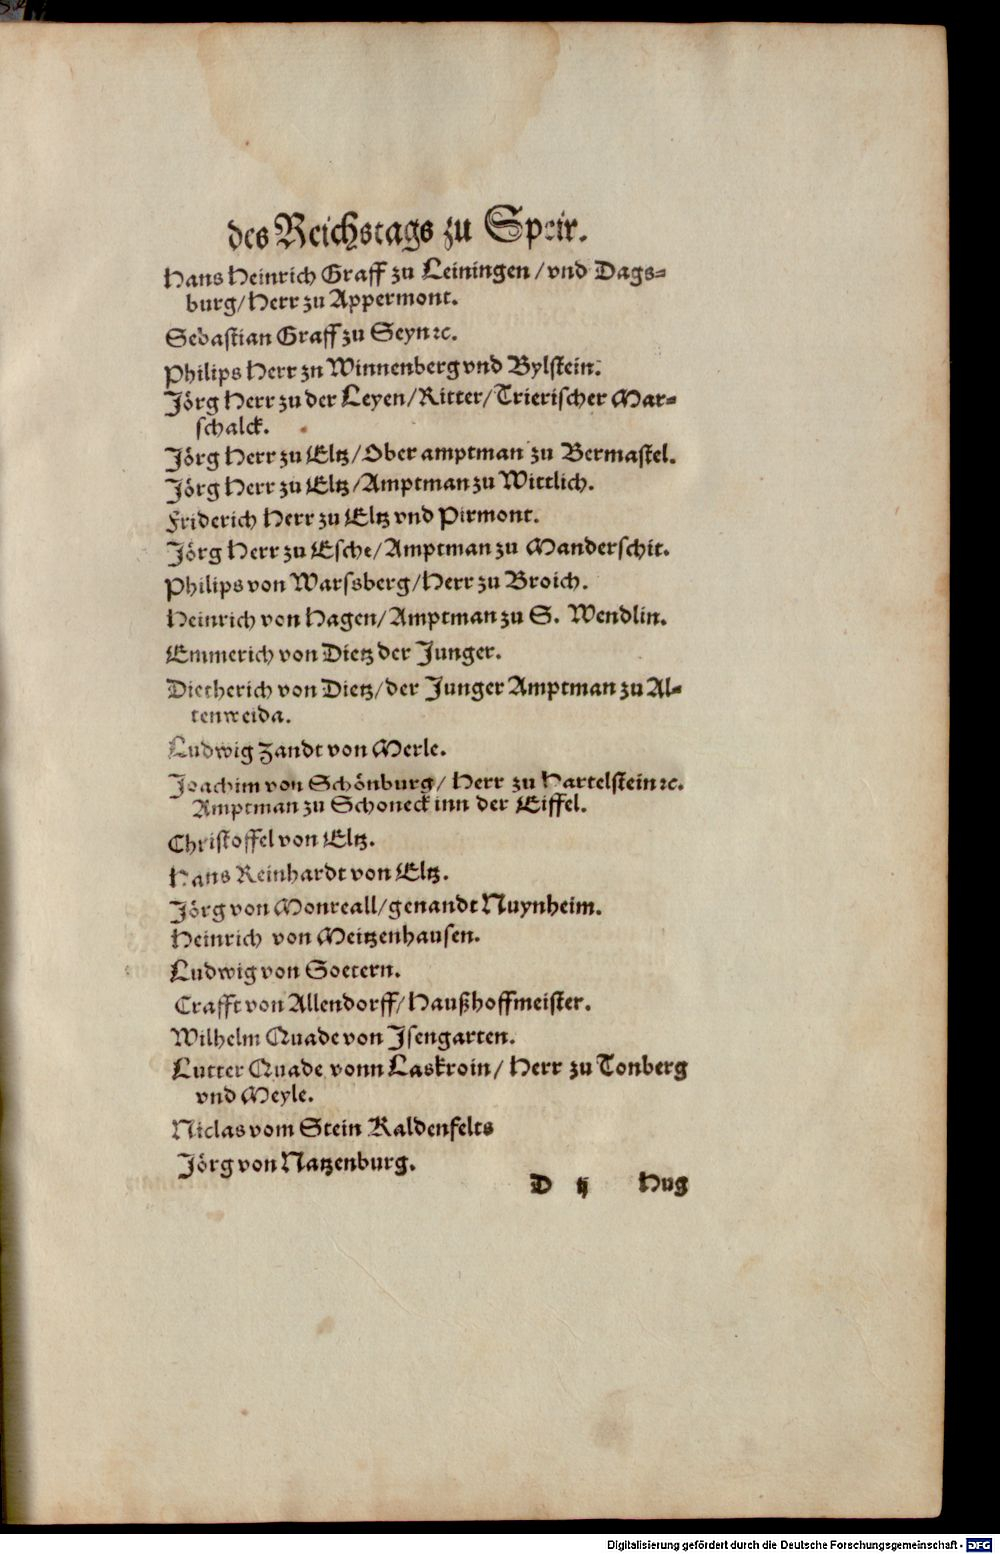 des Reichstags zu Speir.
Hans Heinrich Graff zu Leiningen/vnd Dags-
burg/Herr zu Appermont.
Sebastian Graff zu Seyn ꝛc.
Philips Herr zn Winnenberg vnd Bylstein.
Jörg Herr zu der Leyen/Ritter/Trierischer Mar-
schalck.
Jörg Herr zu Eltz/Ober amptman zu Bermastel.
Jörg Herr zu Eltz/Amptman zu Wittlich.
Friderich Herr zu Eltz vnd Pirmont.
Jörg Herr zu Esche/Amptman zu Manderschit.
Philips von Warssberg/Herr zu Broich.
Heinrich von Hagen/Amptman zu S. Wendlin.
Emmerich von Dietz der Junger.
Dietherich von Dietz/der Junger Amptman zu Al-
tenweida.
Ludwig Zandt von Merle.
Joachim von Schönburg/ Herr zu Hartelstein ꝛc.
Amptman zu Schoneck inn der Eiffel.
Christoffel von Eltz.
Hans Reinhardt von Eltz.
Jörg von Monreall/genandt Nuynheim.
Heinrich von Meitzenhausen.
Ludwig von Soetern.
Crafft von Allendorff/Haußhoffmeister.
Wilhelm Quade von Isengarten.
Lutter Quade vonn Laskroin/ Herr zu Tonberg
vnd Meyle.
Niclas vom Stein Kaldenfelts
Jörg von Natzenburg.
D ij Hug
Digitalisierung gefördert durch die Deutsche Forschungsgemeinschaft - DFG